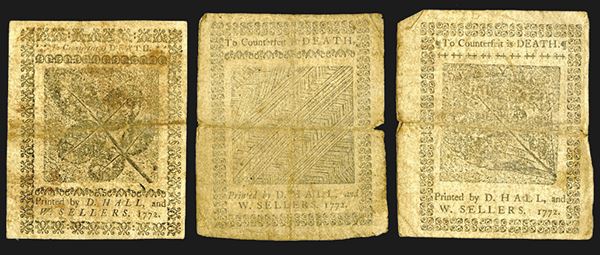 To Counterfeit is DEATH.
Printed by D. HALL, and
W. SELLERS. 1772.
To Counterfeit is DEATH.
Printed by D. HALL, and
W. SELLERS. 1772.
To Counterfeit is DEATH.
Printed by D. HALL, and
W. SELLERS. 1772.